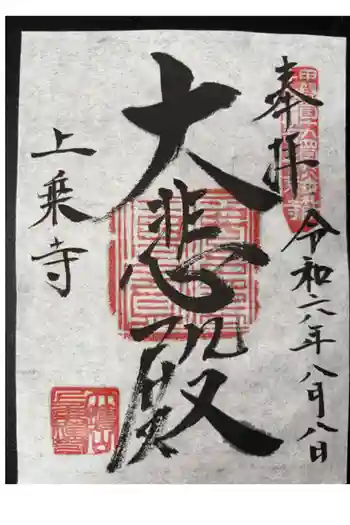 奉拝
令和六年八月八日
大悲殿
上乗寺